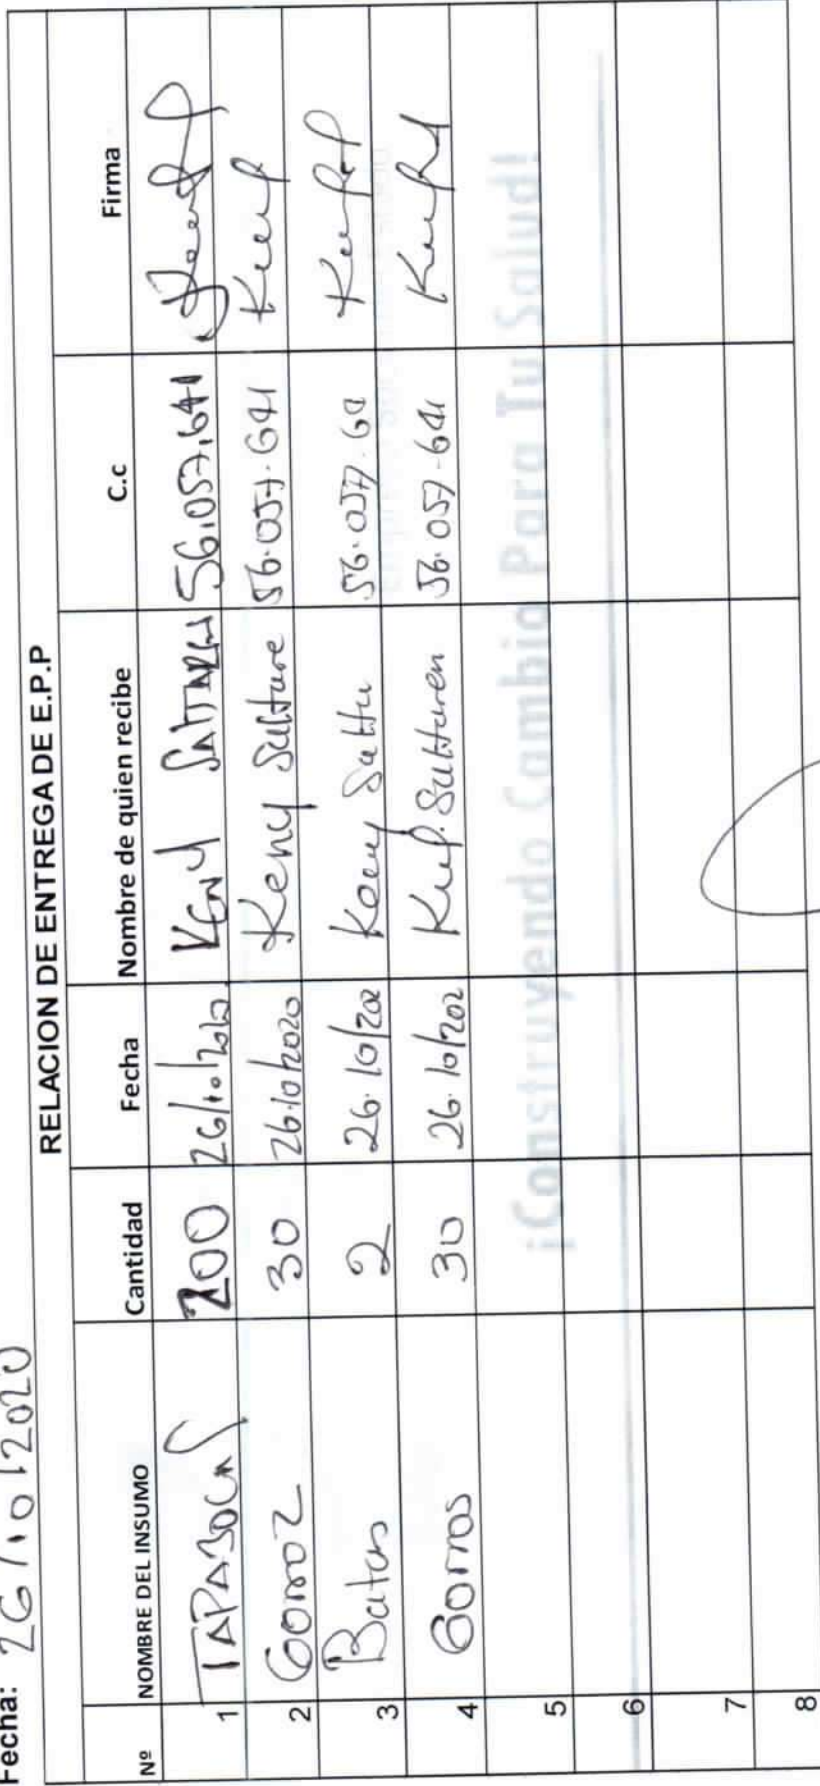 Fecha: 26/10/2020
RELACION DE ENTREGA DE E.P.P
Nº NOMBRE DEL INSUMO Cantidad Fecha Nombre de quien recibe C.c Firma
1 TAPABOCAS 200 26/10/2020 KENY 56.057.641
2 Gorroz 30 26/10/2020 Keny Salture 56.057.641
3 Batas 2 26.10/202 Keny Saltu 56.057.64
4 Gorros 30 26.10/202 Salturen 56.057.641
5
6
7
8
¡Construyendo Cambio Para Tu Salud!